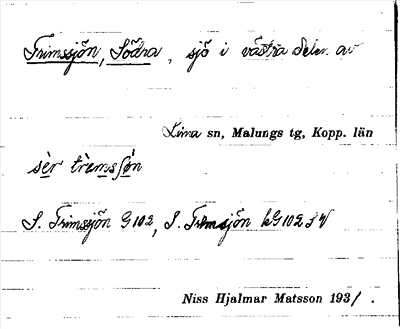 Trimssjön, Södra, sjö i västra delen av
Lima sn, Malungs tg, Kopp. län
sèr trìmsʃön
S. Trimssjön G 102, S. Trimsjön kG 102 SV
Niss Hjalmar Matsson 1931.